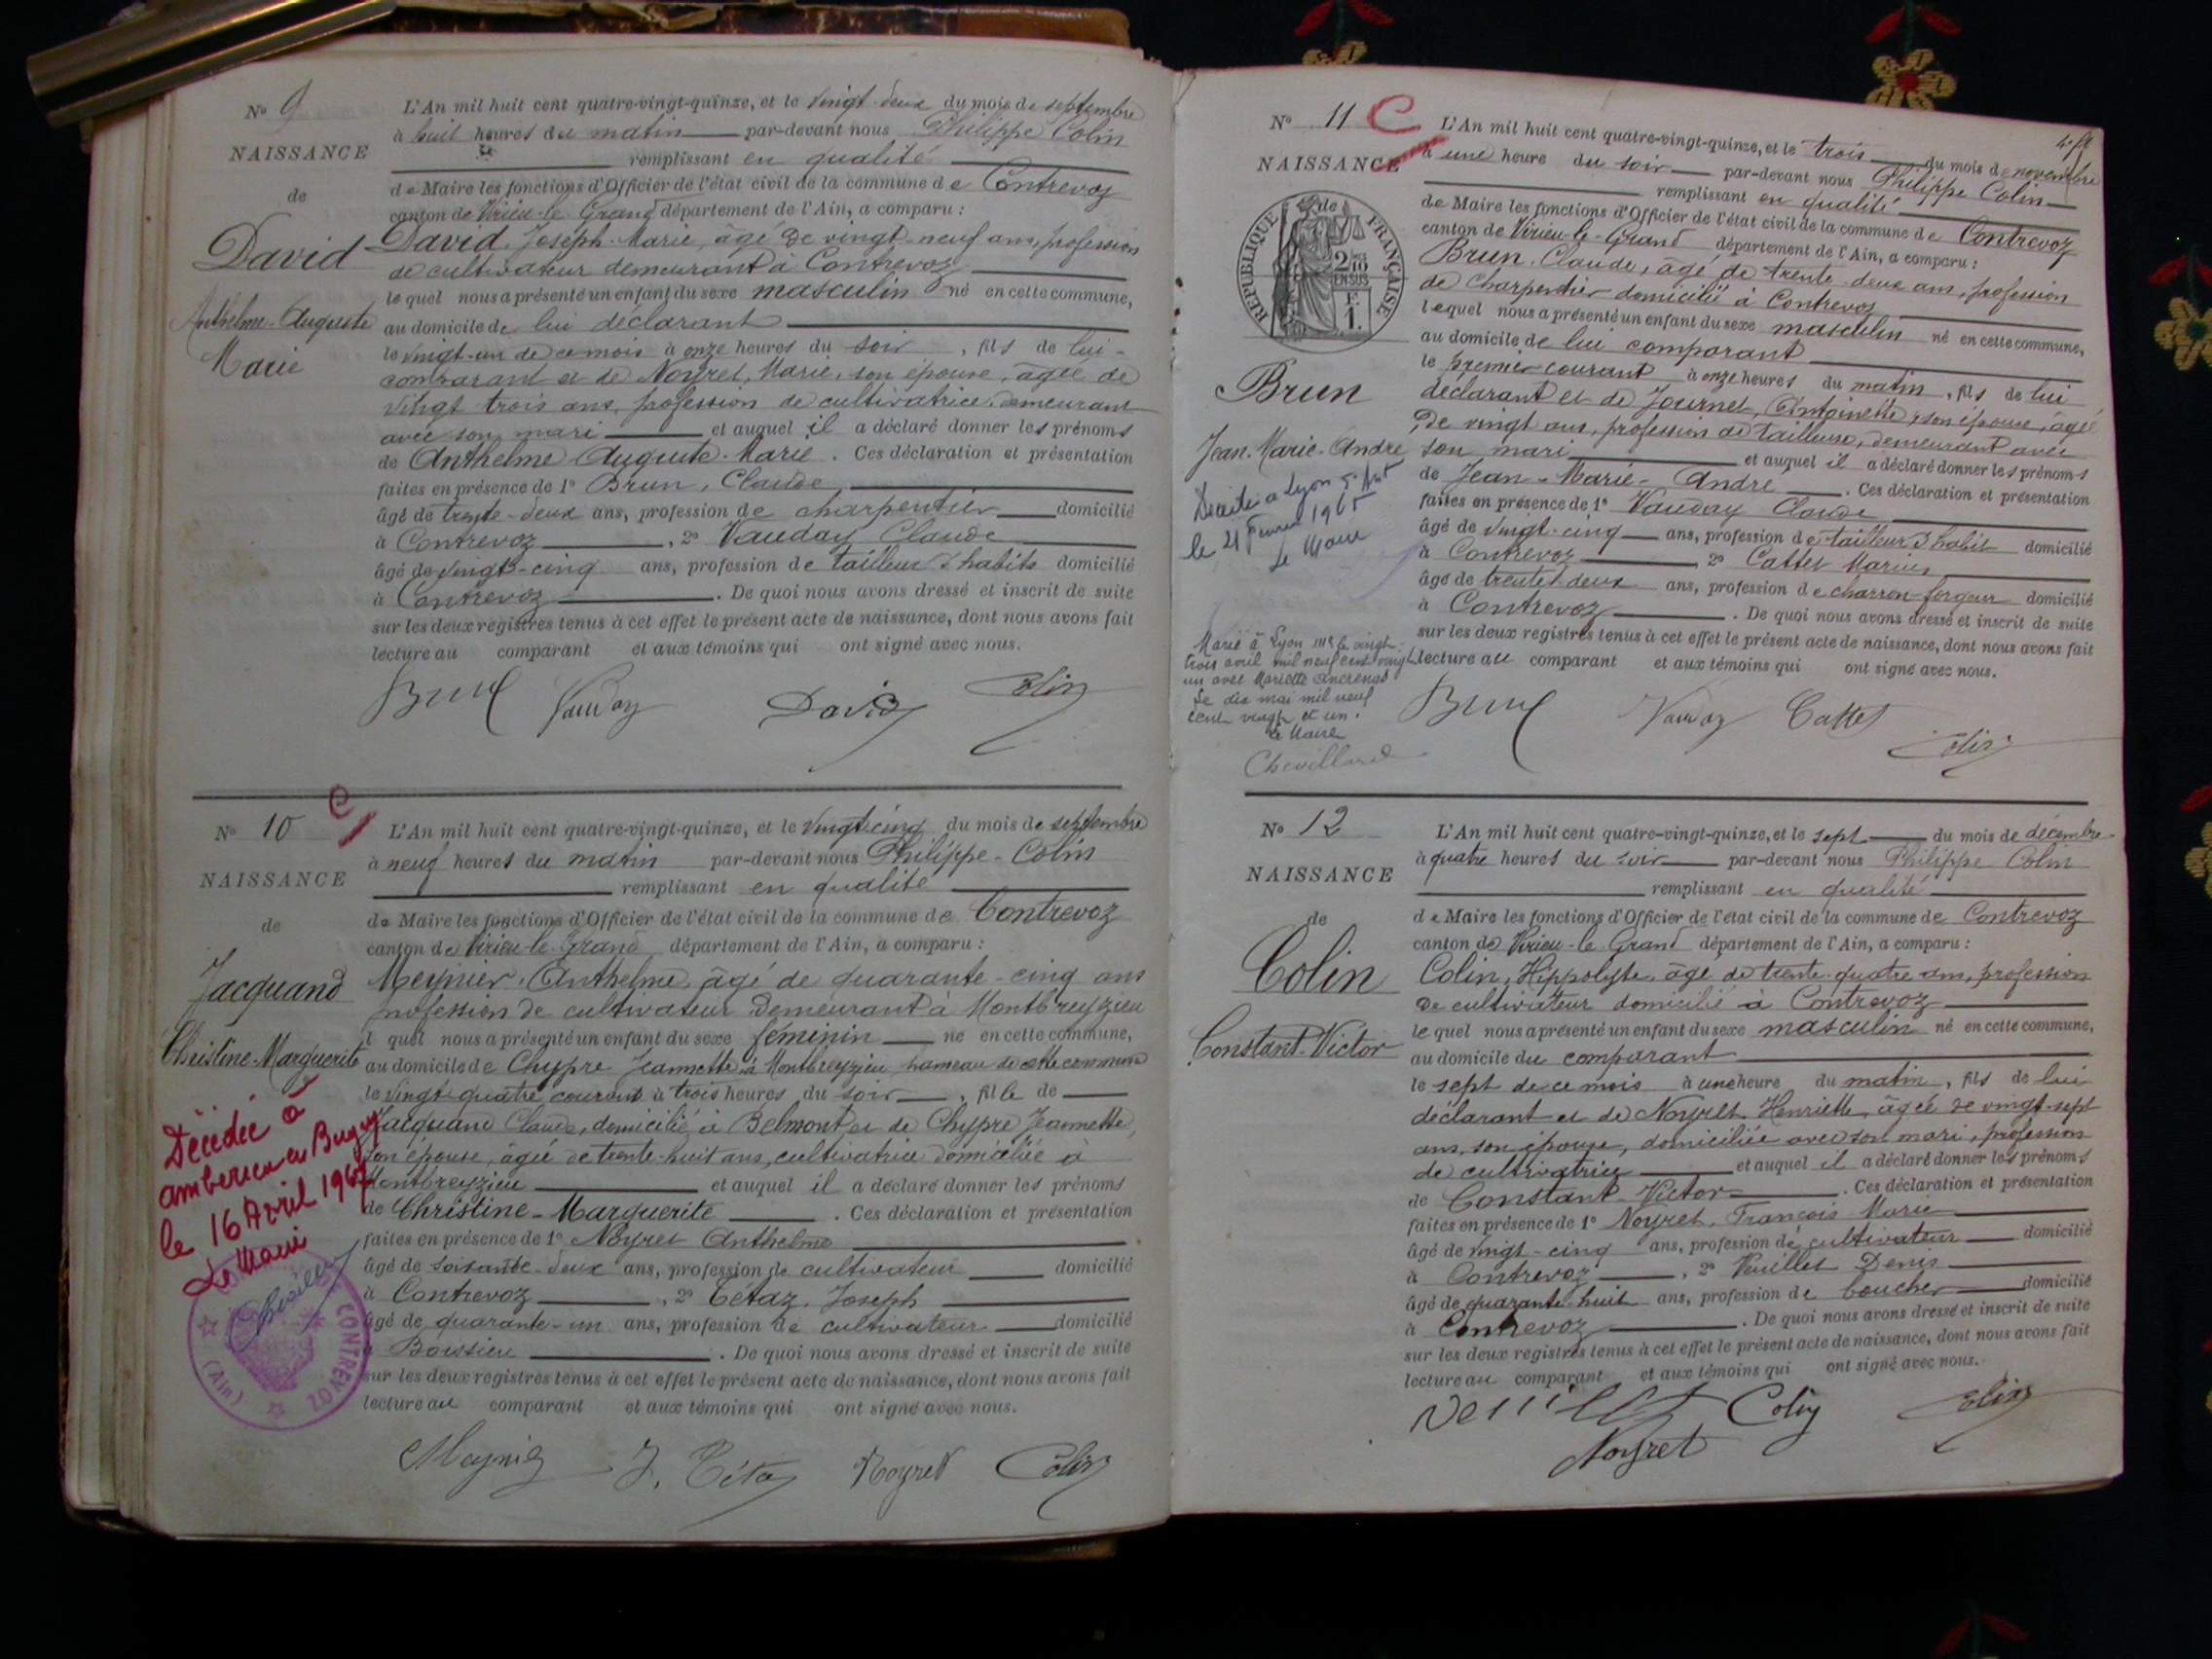 N° 9
NAISSANCE
de
David
Anthelme-Auguste
Marie
L'An mil huit cent quatre-vingt-quinze, et le vingt-deux du mois de septembre
à huit heures du matin par-devant nous Philippe Colin
remplissant en qualité
de Maire les fonctions d'Officier de l'état civil de la commune de Contrevoz
canton de Virieu-le-Grand département de l'Ain, a comparu :
David, Joseph-Marie, âgé de vingt-neuf ans, profession
de cultivateur demeurant à Contrevoz
lequel nous a présenté un enfant du sexe masculin né en cette commune,
au domicile de lui déclarant
le vingt-un de ce mois à onze heures du soir, fils de lui-
comparant et de Noyret, Marie, son épouse, âgée de
vingt trois ans, profession de cultivatrice, demeurant
avec son mari et auquel il a déclaré donner les prénoms
de Anthelme Auguste-Marie. Ces déclaration et présentation
faites en présence de 1° Brun, Claude
âgé de trente-deux ans, profession de charpentier domicilié
à Contrevoz, 2° Vauday Claude
âgé de vingt-cinq ans, profession de tailleur d'habits domicilié
à Contrevoz. De quoi nous avons dressé et inscrit de suite
sur les deux registres tenus à cet effet le présent acte de naissance, dont nous avons fait
lecture au comparant et aux témoins qui ont signé avec nous.
Brun Vauday David Colin
N° 10
NAISSANCE
de
Jacquand
Christine-Marguerite
Décédée à
amberieu en Bugey
le 16 Avril 19
Le Maire
CONTREVOZ
(Ain)
L'An mil huit cent quatre-vingt-quinze, et le vingt-cinq du mois de septembre
à neuf heures du matin par-devant nous Philippe-Colin
remplissant en qualité
de Maire les fonctions d'Officier de l'état civil de la commune de Contrevoz
canton de Virieu-le-Grand département de l'Ain, a comparu :
Meynier, Anthelme, âgé de quarante-cinq ans
profession de cultivateur demeurant à Montbreyzieu
l quel nous a présenté un enfant du sexe féminin né en cette commune,
au domicile de Chypre Jeannette à Montbreyzieu hameau de cette commune
le vingt-quatre courant à trois heures du soir, fille de
Jacquand Claude, domicilié à Belmont et de Chypre Jeannette,
son épouse, âgée de trente-huit ans, cultivatrice domiciliée à
Montbreyzieu et auquel il a déclaré donner les prénoms
de Christine-Marguerite. Ces déclaration et présentation
faites en présence de 1° Noyret Anthelme
âgé de soixante-deux ans, profession de cultivateur domicilié
à Contrevoz, 2° Tétaz, Joseph
âgé de quarante-un ans, profession de cultivateur domicilié
à Boissieu. De quoi nous avons dressé et inscrit de suite
sur les deux registres tenus à cet effet le présent acte de naissance, dont nous avons fait
lecture au comparant et aux témoins qui ont signé avec nous.
Meynier J. Tétaz Noyret Colin
N° 11
NAISSANCE
de
RÉPUBLIQUE FRANÇAISE
2/10 EN SUS
1 F.
Brun
Jean-Marie-André
Décédé à Lyon 5e Art
le 21 Fevrier 1965
Le Maire
Marié à Lyon IIIe le vingt-
trois avril mil neuf cent vingt
un avec Mariette
Le dix mai mil neuf
cent vingt et un.
Le Maire
Chevillard
L'An mil huit cent quatre-vingt-quinze, et le trois du mois de novembre
à une heure du soir par-devant nous Philippe Colin
remplissant en qualité
de Maire les fonctions d'Officier de l'état civil de la commune de Contrevoz
canton de Virieu-le-Grand département de l'Ain, a comparu :
Brun, Claude, âgé de trente-deux ans, profession
de charpentier domicilié à Contrevoz
lequel nous a présenté un enfant du sexe masculin né en cette commune,
au domicile de lui comparant
le premier courant à onze heures du matin, fils de lui
déclarant et de Journet, Antoinette, son épouse, âgée
de vingt ans, profession de tailleuse, demeurant avec
son mari et auquel il a déclaré donner les prénoms
de Jean-Marie-André. Ces déclaration et présentation
faites en présence de 1° Vauday Claude
âgé de vingt-cinq ans, profession de tailleur d'habit domicilié
à Contrevoz 2° Cattet Marius
âgé de trente-deux ans, profession de charron-forgeur domicilié
à Contrevoz. De quoi nous avons dressé et inscrit de suite
sur les deux registres tenus à cet effet le présent acte de naissance, dont nous avons fait
lecture au comparant et aux témoins qui ont signé avec nous.
Brun Vauday Cattet
Colin
N° 12
NAISSANCE
de
Colin
Constant-Victor
L'An mil huit cent quatre-vingt-quinze, et le sept du mois de décembre
à quatre heures du soir par-devant nous Philippe Colin
remplissant en qualité
de Maire les fonctions d'Officier de l'état civil de la commune de Contrevoz
canton de Virieu-le-Grand département de l'Ain, a comparu :
Colin, Hippolyte, âgé de trente-quatre ans, profession
de cultivateur domicilié à Contrevoz
lequel nous a présenté un enfant du sexe masculin né en cette commune,
au domicile du comparant
le sept de ce mois à une heure du matin, fils de lui
déclarant et de Noyret Henriette, âgée de vingt-sept
ans, son épouse, domiciliée avec son mari, profession
de cultivatrice et auquel il a déclaré donner les prénoms
de Constant Victor. Ces déclaration et présentation
faites en présence de 1° Noyret, François Marie
âgé de vingt-cinq ans, profession de cultivateur domicilié
à Contrevoz, 2° Veuillet Denis
âgé de quarante-huit ans, profession de boucher domicilié
à Contrevoz. De quoi nous avons dressé et inscrit de suite
sur les deux registres tenus à cet effet le présent acte de naissance, dont nous avons fait
lecture au comparant et aux témoins qui ont signé avec nous.
Veuillet Colin Colin
Noyret